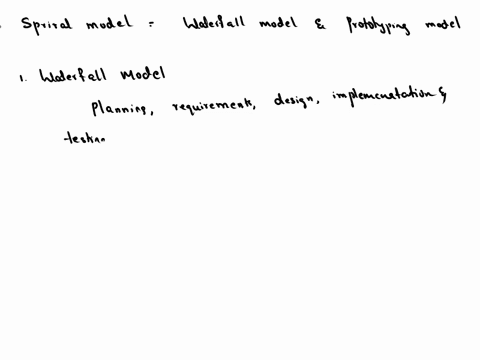 Spriral model = Waterfall model & Prototyping model
1. Waterfall Model
Planning, requirement, design, implementation &